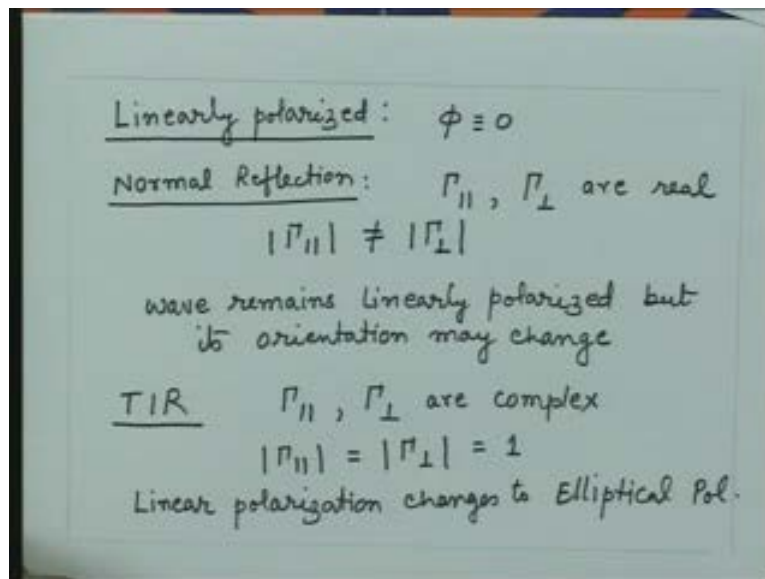 Linearly polarized: φ ≡ 0
Normal Reflection: Γ||, Γ⊥ are real
|Γ||| ≠ |Γ⊥|
wave remains linearly polarized but
its orientation may change
TIR Γ||, Γ⊥ are complex
|Γ||| = |Γ⊥| = 1
Linear polarization changes to Elliptical Pol.